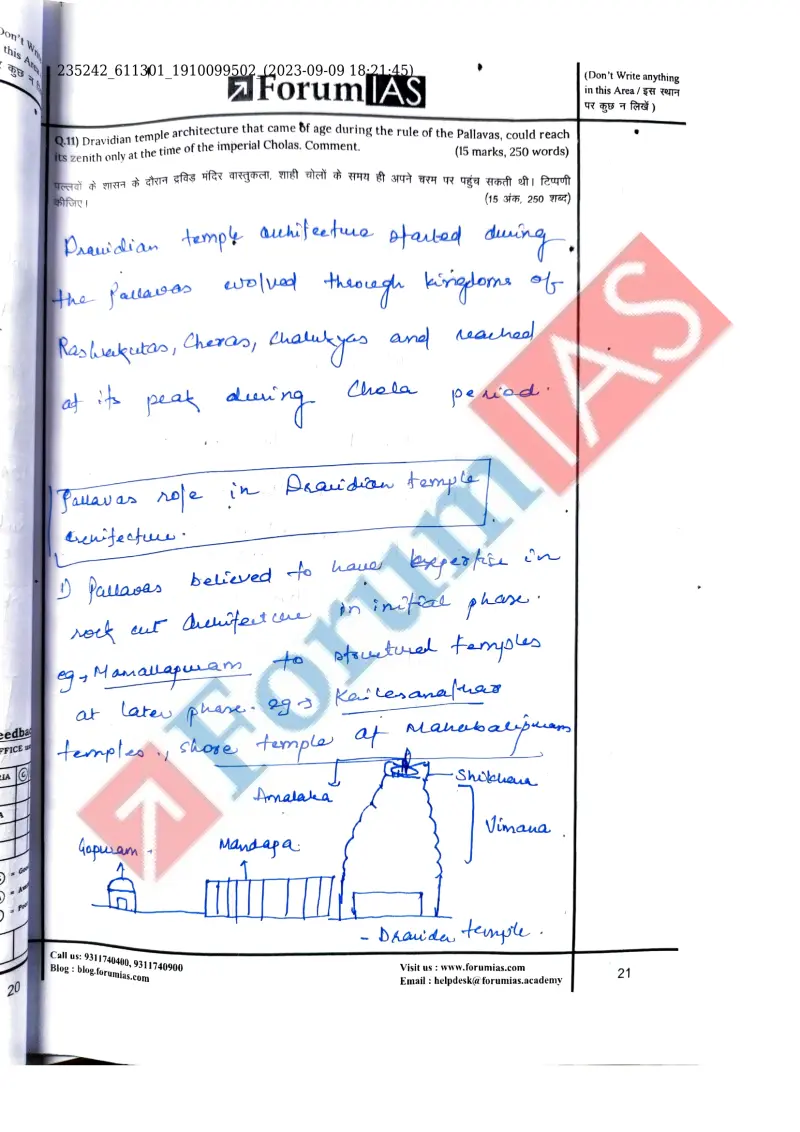 235242_611301_1910099502_(2023-09-09 18:21:45)
ForumIAS
(Don't Write anything
in this Area / इस स्थान
पर कुछ न लिखें )
Q.11) Dravidian temple architecture that came of age during the rule of the Pallavas, could reach
its zenith only at the time of the imperial Cholas. Comment.
(15 marks, 250 words)
पल्लवों के शासन के दौरान द्रविड़ मंदिर वास्तुकला, शाही चोलों के समय ही अपने चरम पर पहुंच सकती थी। टिप्पणी
कीजिए।
(15 अंक, 250 शब्द)
Dravidian temple architecture started during
the Pallavas evolved through kingdoms of
Rashrakutas, Cheras, Chalukyas and reached
at its peak during Chola period.
Pallavas role in Dravidian temple
architecture.
1) Pallavas believed to have expertise in
rock cut Architecture in initial phase.
eg → Mamallapuram to structured temples
at later phase. eg →
temples., shore temple at Mahabalipuram
Shikhara
Amalaka
Vimana
Gopuram
Mandapa
- Dravida temple.
Call us: 9311740400, 9311740900
Blog : blog.forumias.com
Visit us : www.forumias.com
Email : helpdesk@forumias.academy
21
20
ForumIAS